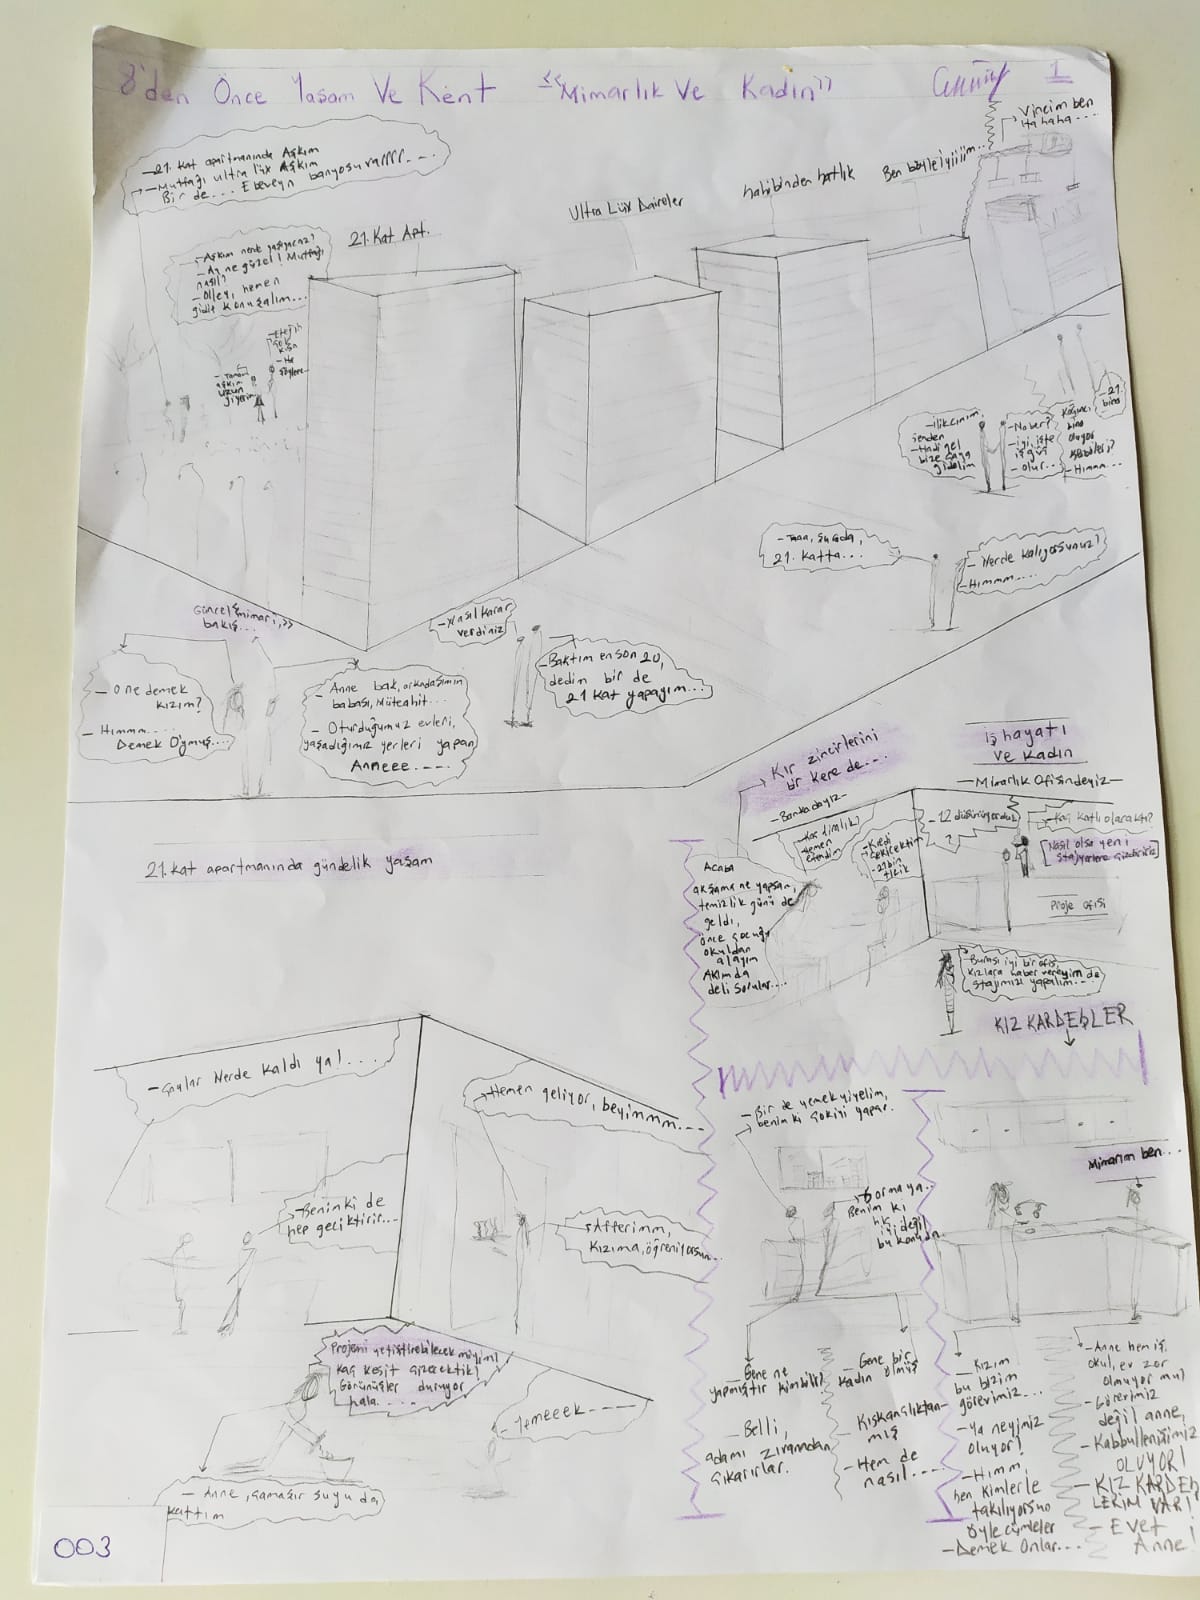 8'den Önce Yaşam Ve Kent "Mimarlık Ve Kadın"
1
Vincim ben
Ha haha....
-21. Kat apartmanında Aşkım
-Mutfağı ultra lüx Aşkım
Bir de.... Ebeveyn banyosu varrrr....
-Aşkım nerde yaşıyoruz?
-Ay ne güzel! Mutfağı
nasıl?
-Olley, hemen
gidip konuşalım...
21. Kat Apt.
Ultra Lüx Daireler
Sahibinden Satlık
Ben böyle iyiiiim...
-Eteğin
çok
kısa
-Ne
-Tamam
aşkım
uzun
giyerim
senden
-Hadi gel
bize çaya
gidelim
-Naber?
-iyi, işte
iş güç
-Olur...
Kaçıncı
bina
oluyor
-Hımm...
-21.
bina
-Taaa, şurada,
21. Katta...
-Nerde kalıyorsunuz?
-Hımmm....
Güncel "mimari,"
bakış...
-Nasıl karar
verdiniz
-Baktım en son 20,
dedim bir de
21 Kat yapayım...
-O ne demek
kızım?
-Hımmm....
Demek O'ymuş....
-Anne bak, arkadaşımın
babası, Müteahit...
-Oturduğumuz evleri,
yaşadığımız yerleri yapan
Anneee....
Kır zincirlerini
bir kere de....
İş hayatı
ve Kadın
-Mimarlık Ofisindeyiz-
-Bankadayız-
hemen
efendim
-Kredi
çekicektim
-21 bin
-12 düşünüyorduk
?
-Kaç Katlı olacaktı?
[Nasıl olsa yeni
stajyerlere çizdiririz]
Proje ofisi
Acaba
akşama ne yapsam,
temizlik günü de
geldi,
önce çocuğu
okuldan
alayım
Aklımda
deli sorular....
-Burası iyi bir ofis,
kızlara haber vereyim de
stajımızı yapalım....
KIZ KARDEŞLER
21. kat apartmanında gündelik yaşam
-Çaylar Nerde Kaldı ya!....
-Hemen geliyor, beyimmm...
-Beninki de
hep geciktirir...
-Afferimm,
Kızıma, öğreniyorsun...
Projemi yetiştirebilecek miyim!
Kaç kesit çizecektik!
Görünüşler duruyor
hala....
-Yemeeek-----
-Anne, çamaşır suyu da,
Kattım
-Bir de yemek yiyelim,
beninki çok iyi yapar.
-Sorma ya..
Benim ki
hiç
iyi değil
bu konuda..
Mimarım ben...
-Gene ne
yapmıştır kimbilir!
-Belli,
adamı zıvanadan
çıkarırlar.
-Gene bir
kadın ölmüş
-Kıskançlıktan-
mış
-Hem de
nasıl....
-Kızım
bu bizim
görevimiz...
-Ya neyimiz
oluyor!
-Hımm,
sen kimlerle
takılıyorsun
öyle cümleler
-Demek Onlar...
-Anne hem iş,
okul, ev zor
olmuyor mu?
-Görevimiz
değil anne,
-Kabbullenişimiz
OLUYOR!
-KIZ KARDEŞ
LERİM VAR!
-Evet
Anne!
003